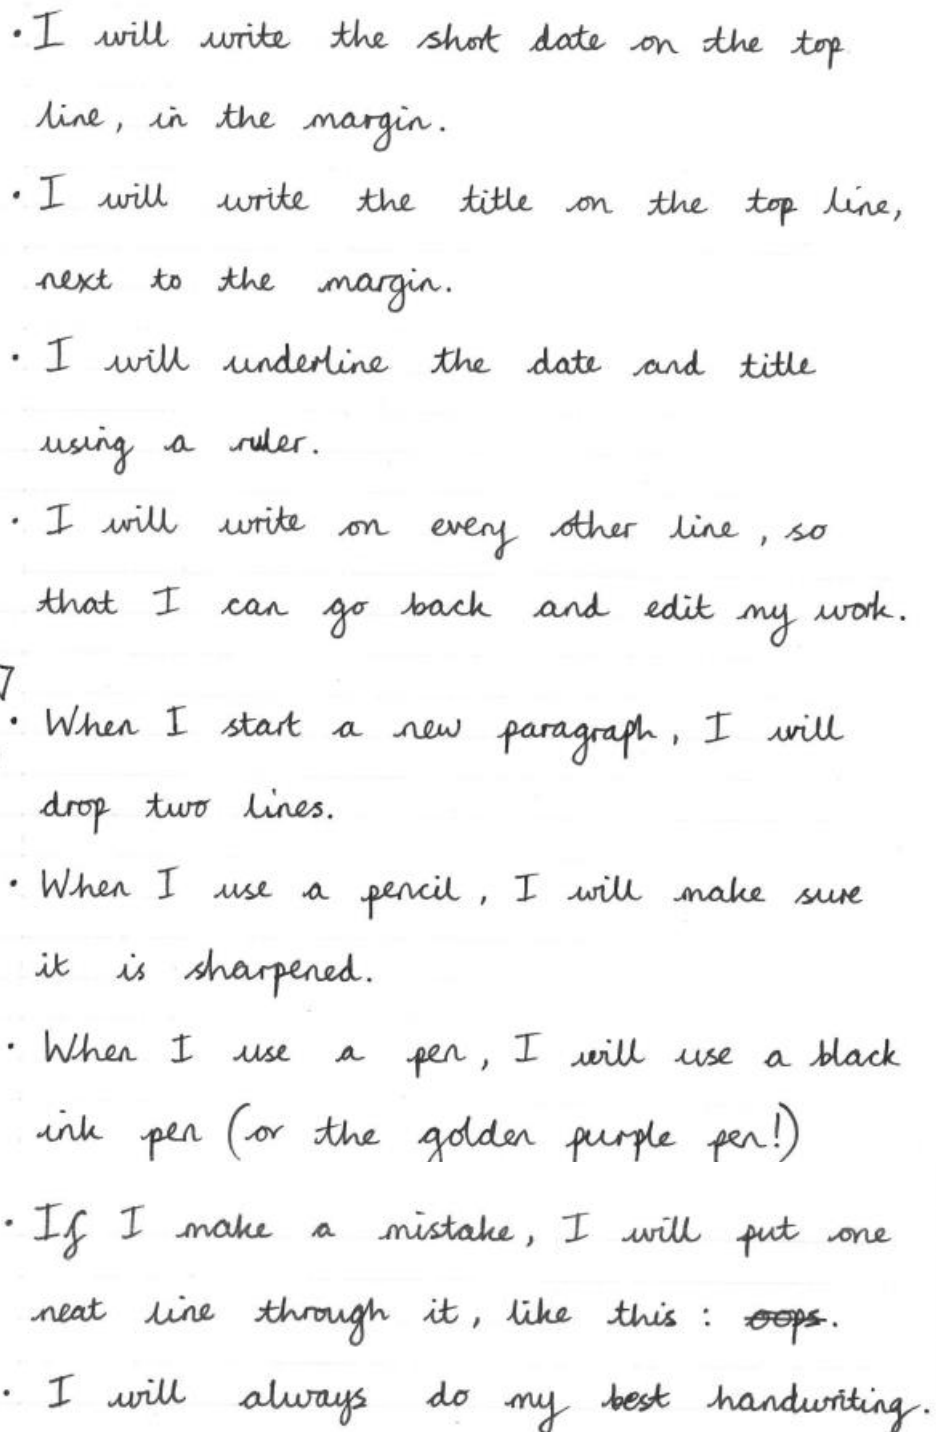 · I will write the short date on the top
line, in the margin.
· I will write the title on the top line,
next to the margin.
· I will underline the date and title
using a ruler.
· I will write on every other line, so
that I can go back and edit my work.
7
· When I start a new paragraph, I will
drop two lines.
· When I use a pencil, I will make sure
it is sharpened.
· When I use a pen, I will use a black
ink pen (or the golden purple pen!)
· If I make a mistake, I will put one
neat line through it, like this: oops.
· I will always do my best handwriting.